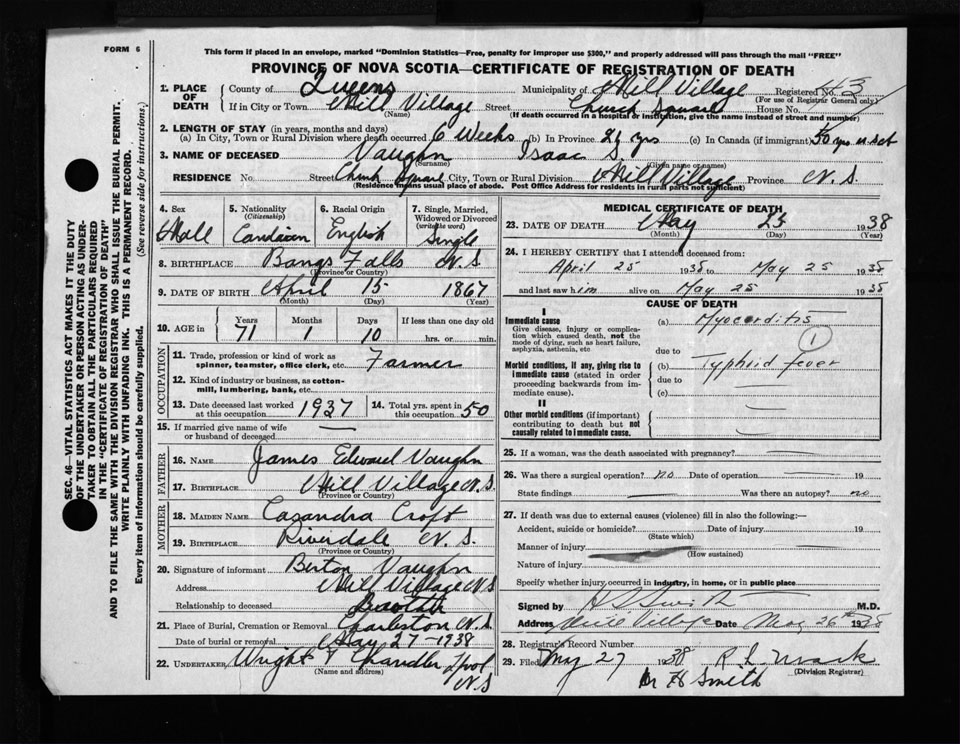 FORM 6
This form if placed in an envelope, marked "Dominion Statistics—Free, penalty for improper use $300," and properly addressed will pass through the mail "FREE"
PROVINCE OF NOVA SCOTIA—CERTIFICATE OF REGISTRATION OF DEATH
SEC. 46—VITAL STATISTICS ACT MAKES IT THE DUTY
OF THE UNDERTAKER OR PERSON ACTING AS UNDER-
TAKER TO OBTAIN ALL THE PARTICULARS REQUIRED
IN THE "CERTIFICATE OF REGISTRATION OF DEATH"
AND TO FILE THE SAME WITH THE DIVISION REGISTRAR WHO SHALL ISSUE THE BURIAL PERMIT.
WRITE PLAINLY WITH UNFADING INK. THIS IS A PERMANENT RECORD.
Every item of information should be carefully supplied. (See reverse side for instructions.)
1. PLACE OF DEATH County of Queens Municipality of Mill Village Registered No.
(For use of Registrar General only)
If in City or Town Mill Village Street Church Square House No.
(Name) (If death occurred in a hospital or institution, give the name instead of street and number)
2. LENGTH OF STAY (in years, months and days)
(a) In City, Town or Rural Division where death occurred 6 Weeks (b) In Province yrs (c) In Canada (if immigrant)
3. NAME OF DECEASED Vaughn Isaac S
(Surname) (Given name or names)
RESIDENCE No. Street Church Square City, Town or Rural Division Mill Village Province N. S.
(Residence means usual place of abode. Post Office Address for residents in rural parts not sufficient)
4. Sex 5. Nationality (Citizenship) 6. Racial Origin 7. Single, Married, Widowed or Divorced (write the word)
Male Candian English Single
8. BIRTHPLACE Bangs Falls N. S.
(Province or Country)
9. DATE OF BIRTH April 15 1867
(Month) (Day) (Year)
10. AGE in Years Months Days If less than one day old
71 1 10 hrs. or min.
OCCUPATION
11. Trade, profession or kind of work as spinner, teamster, office clerk, etc. Farmer
12. Kind of industry or business, as cotton-mill, lumbering, bank, etc.
13. Date deceased last worked at this occupation 1937 14. Total yrs. spent in this occupation 50
15. If married give name of wife or husband of deceased —
FATHER
16. NAME James Edward Vaughn
17. BIRTHPLACE Mill Village N. S.
(Province or Country)
MOTHER
18. MAIDEN NAME Casandra Croft
19. BIRTHPLACE Riverdale N. S.
(Province or Country)
20. Signature of informant Burton Vaughn
Address Mill Village N S
Relationship to deceased
21. Place of Burial, Cremation or Removal Charleston N. S.
Date of burial or removal May 27 - 1938
22. UNDERTAKER Wright Chandler Lpool
(Name and address) N. S
MEDICAL CERTIFICATE OF DEATH
23. DATE OF DEATH May 25 1938
(Month) (Day) (Year)
24. I HEREBY CERTIFY that I attended deceased from:
April 25 1938 to May 25 1938
and last saw him alive on May 25 1938
CAUSE OF DEATH
I
Immediate cause (a) Myocarditis
Give disease, injury or complication which caused death, not the mode of dying, such as heart failure, asphyxia, asthenia, etc
1
due to
Morbid conditions, if any, giving rise to immediate cause (stated in order proceeding backwards from immediate cause). (b) Typhoid fever
due to
(c)
II
Other morbid conditions (if important) contributing to death but not causally related to immediate cause.
25. If a woman, was the death associated with pregnancy?
26. Was there a surgical operation? no Date of operation 19
State findings Was there an autopsy? no
27. If death was due to external causes (violence) fill in also the following:—
Accident, suicide or homicide? Date of injury 19
(State which)
Manner of injury
(How sustained)
Nature of injury
Specify whether injury occurred in industry, in home, or in public place
Signed by H S Smith M.D.
Address Mill Village Date May 26th 1938
28. Registrar's Record Number
29. Filed May 27 1938 R L Mack
(Division Registrar)
Dr H Smith